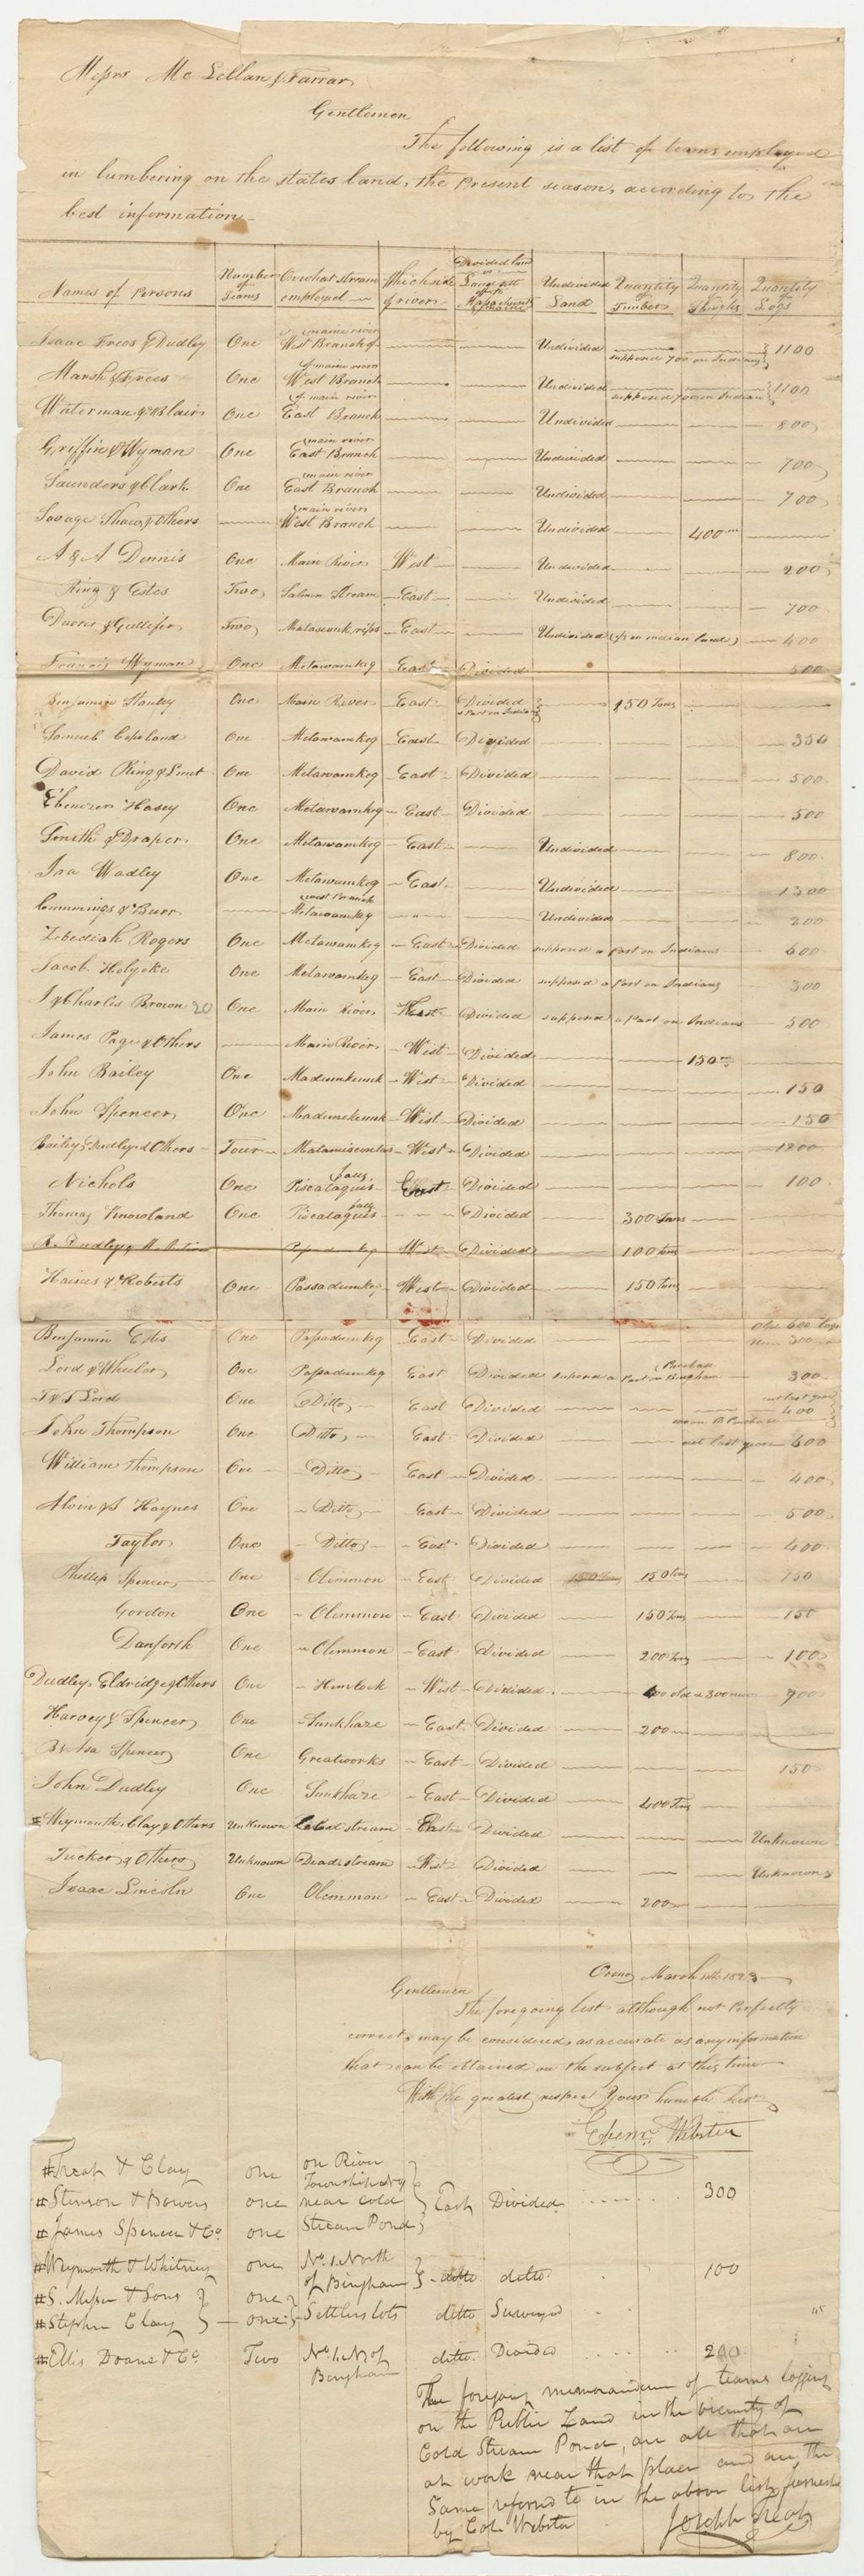 Messrs Mc Lellan & Farrar
Gentlemen
The following is a list of teams employed
in lumbering on the states land, the present season, according to the
best information
Names of Persons | Number of Teams | On what stream employed | Which side of river | Divided land | Undivided Land | Quantity of Timber | Quantity of Shingles | Quantity of Logs
Isaac Frees & Dudley One West Branch of main river Undivided supposed 700 on Indians 1100
Marsh & Frees One West Branch of main river Undivided supposed 700 on Indian 1100
Waterman & Blair One East Branch of main river Undivided 800
Griffin & Wyman One East Branch main river Undivided 700
Saunders & Clark One East Branch main river Undivided 700
Savage Shaw & others West Branch main river Undivided 400 m
A & A Dennis One Main River West Undivided 200
Ring & Estes Two Salmon Stream East Undivided 700
& Gullifer Two East Undivided on indian land 400
Francis Wyman One Metawamkeg East Divided 500
Benjamin Stanley One Main River East Divided & Part on Indians 150 Tons
Samuel Copeland One Metawamkeg East Divided 350
David Ring & Lunt One Metawamkeg East Divided 500
Ebenezer Hasey One Metawamkeg East Divided 500
Smith & Draper One Metawamkeg East Undivided 800
Ira Wadley One Metawamkeg East Undivided 1300
Cummings & Burr West Branch Metawamkeg " Undivided 200
Zebediah Rogers One Metawamkeg East Divided supposed a Part on Indians 600
Jacob Holyoke One Metawamkeg East Divided supposed a Part on Indians 300
J & Charles Brown 20 One Main River Divided supposed a Part on Indians 500
James Page & Others Main River West Divided 150 m
John Bailey One Madumkeunk West Divided 150
John Spencer One Madumkeunk West Divided 150
Bailey, Dudley & Others Four Matamiscontas West Divided 1200
Nichols One Piscataquis falls East Divided 100
Thomas Knowland One Piscataquis falls Divided 300 Tons
R. Dudley & West Divided 100 tons
Haines & Roberts One Passadumkeg West Divided 150 Tons
Benjamin Estes One Passadumkeg East Divided Old 600 Logs New 300
Lord & Wheeler One Passadumkeg East Divided supposed a Part on Bingham Purchase 300
T & T Lord One Ditto East Divided cut last year 400
John Thompson One Ditto East Divided some on B Purchase cut last year 600
William Thompson One Ditto East Divided 400
Alvin & S Haynes One Ditto East Divided 500
Taylor One Ditto East Divided 400
Phillip Spencer One Olemmon East Divided 150 tons 150
Gordon One Olemmon East Divided 150 Tons 150
Danforth One Olemmon East Divided 200 Tons 100
Dudley, Eldridge & Others One Hemlock West Divided old & 300 new 900
Harvey & Spencer One Sunkhaze East Divided 200
B & Asa Spencer One Greatworks East Divided 150
John Dudley One Sunkhaze East Divided 400 Tons
# Weymouth, Clay & Others Unknown Cold stream East Divided Unknown
Tucker & Others Unknown Dead stream West Divided Unknown
Isaac Lincoln One Olemmon East Divided 200
Orono March 10th 1823
Gentlemen
The foregoing list although not Perfectly
correct, may be considered, as accurate as any information
that can be obtained on the subject at this time
With the greatest respect Your humble Servt
Ebenr Webster
# Treat & Clay one on River Township
# Stinson & Bowers one near Cold East Divided 300
# James Spencer & Co. one Stream Pond
# Weymouth & Whitney one No. 1. North of Bingham ditto ditto 100
# S. Messer & Sons one
# Stephen Clay one Settlers lots ditto Surveyed
# Ellis Doane & Co. Two No. 1. N of Bingham ditto Divided 200
The foregoing memorandum of teams logging
on the Public Land in the vicinity of
Cold Stream Pond, are all that are
at work near that place and are the
Same referred to in the above list furnished
by Col. Webster
Joseph Treat